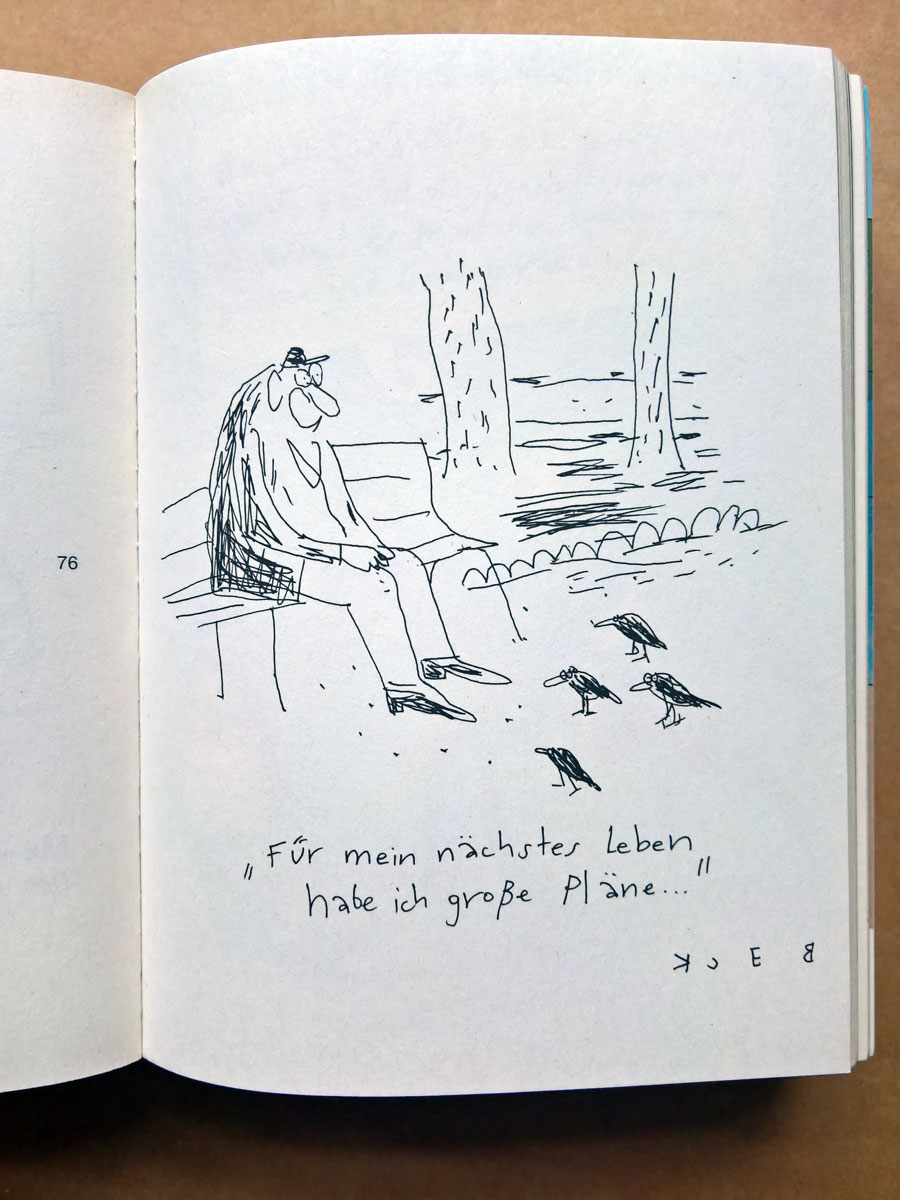 76
„Für mein nächstes Leben
habe ich große Pläne..."
BECK